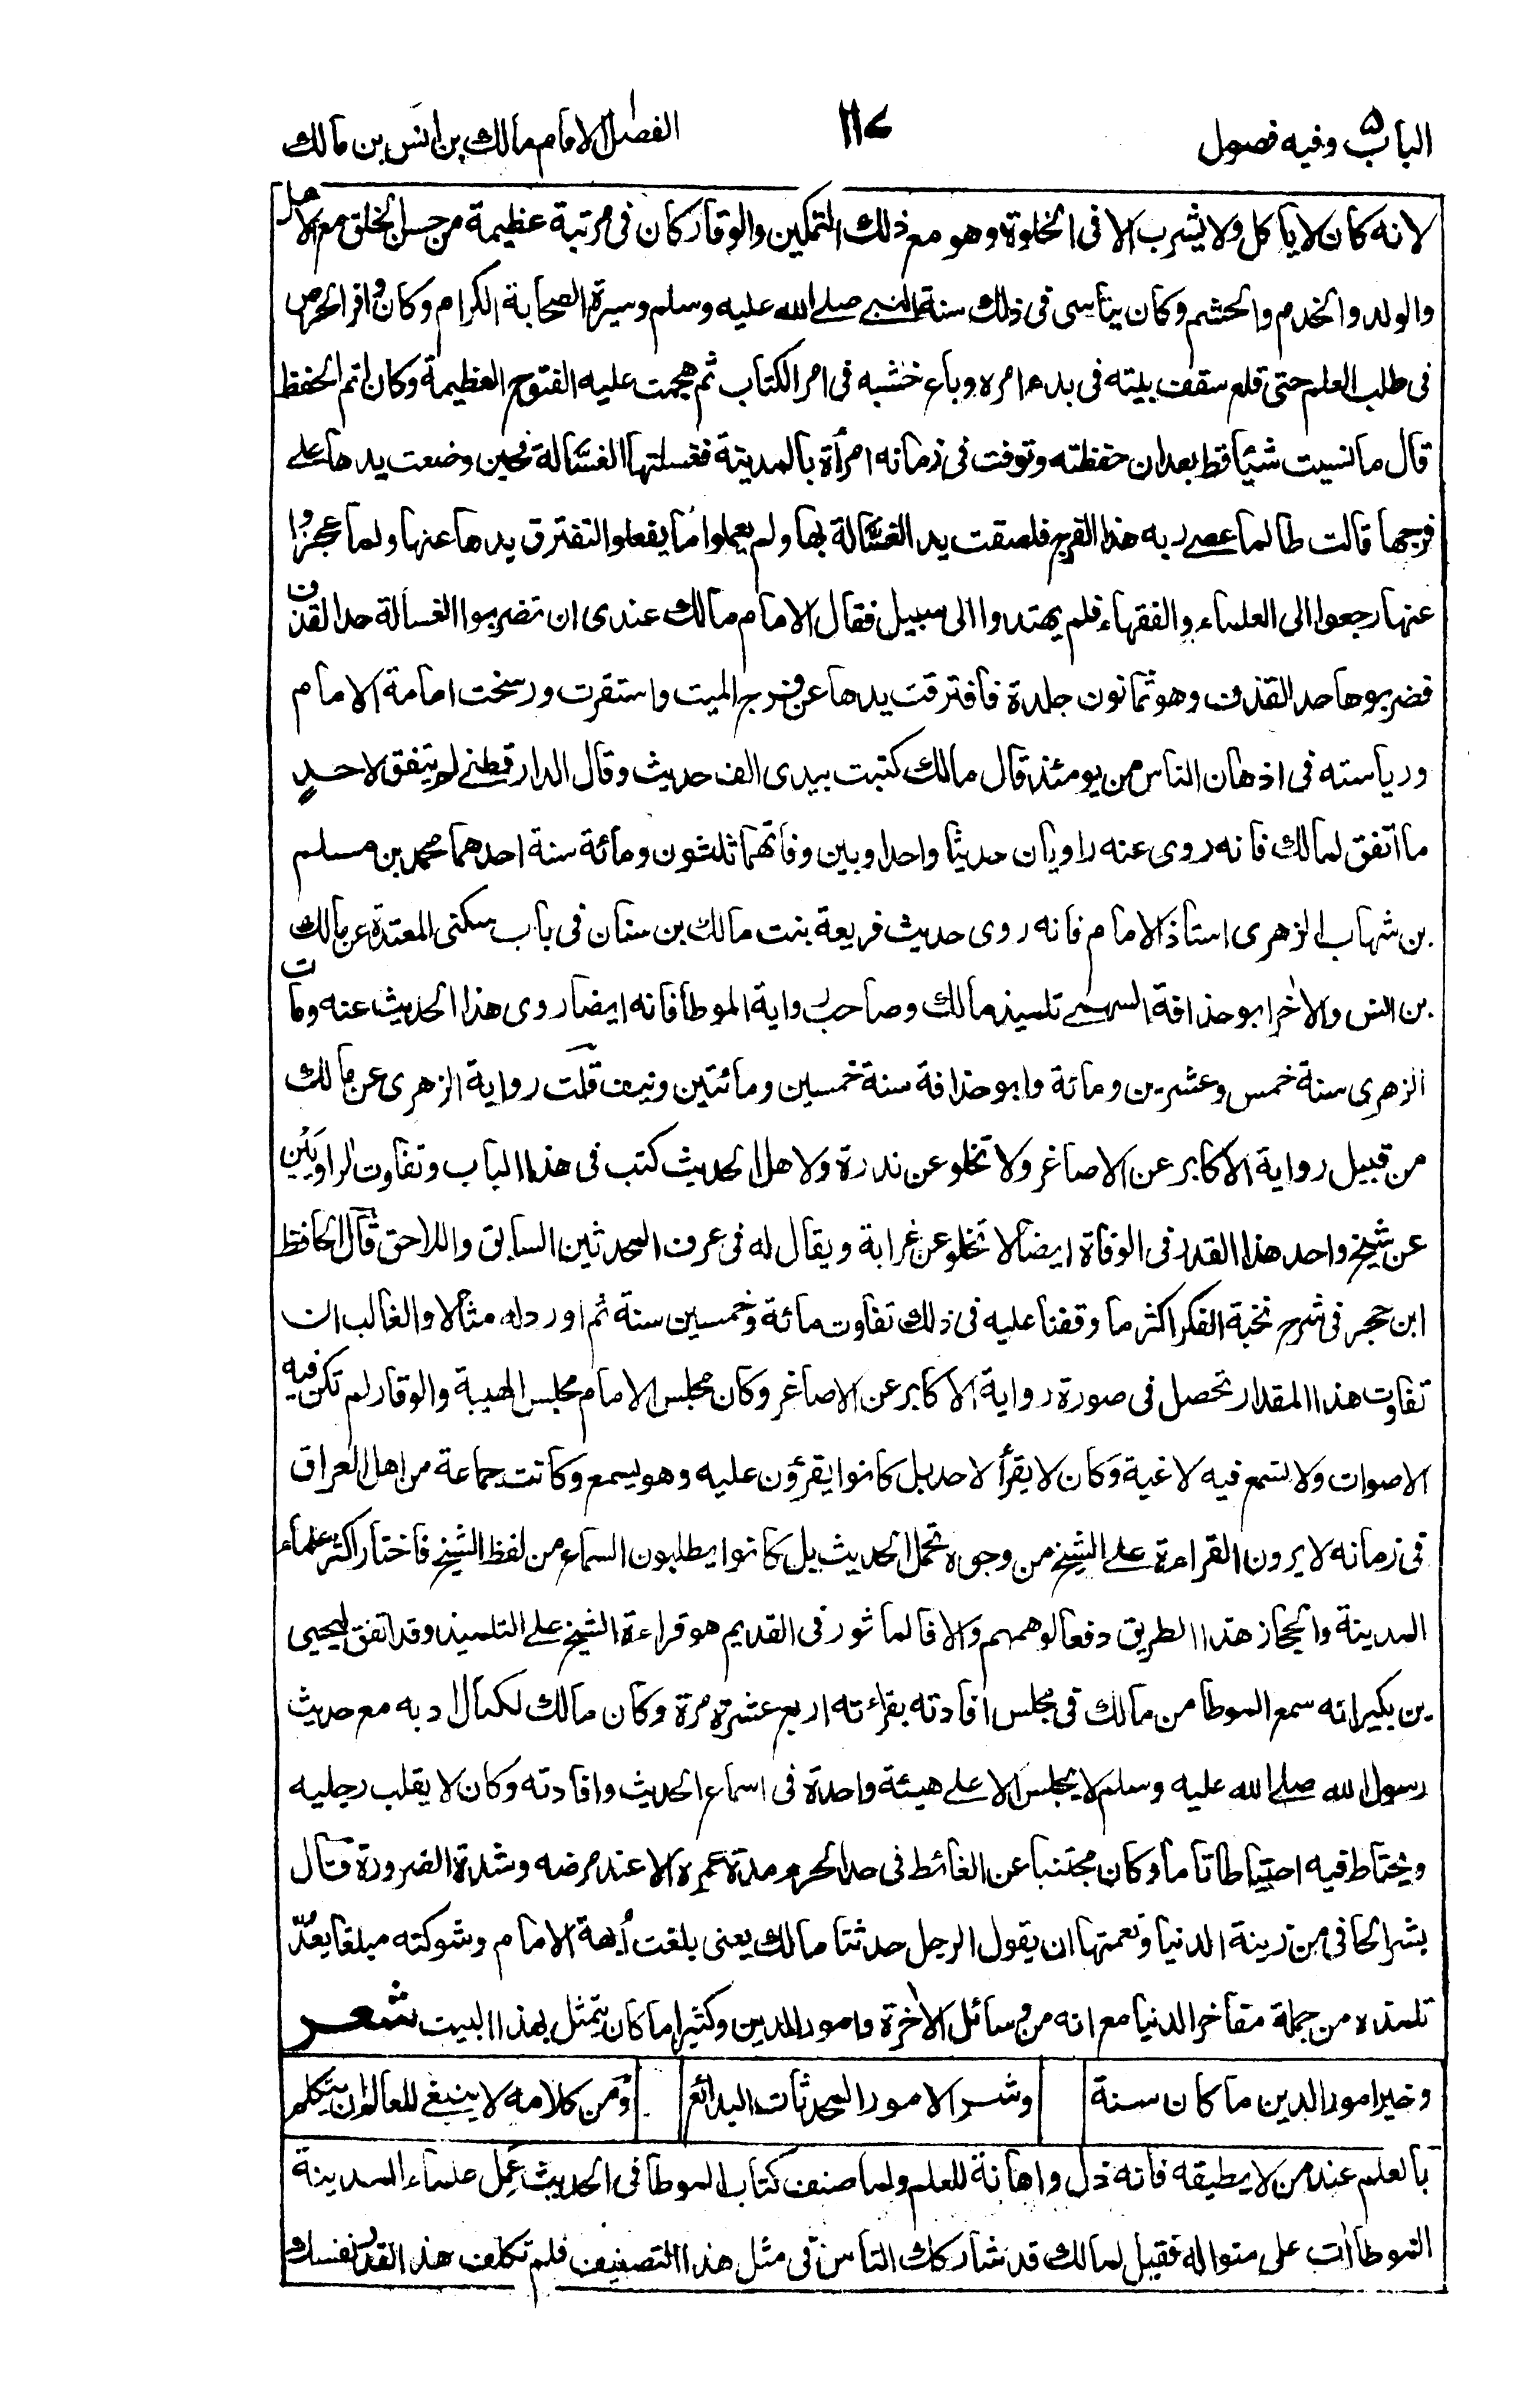 الباب ۵ وفيه فصول
١١٧
الفصل الامام مالك بن انس بن مالك
لانه كان لا يأكل ولا يشرب الا في الخلوة وهو مع ذلك التمكين والوقار كان في مرتبة عظيمة من حسن الخلق مع الاهل
والولد والخدم والحشم وكان يتأسى في ذلك سنة النبي صلى الله عليه وسلم وسيرة الصحابة الكرام وكان وافر الحرص
في طلب العلم حتى قلع سقف بيته في بدء امره وباع خشبه في امر الكتاب ثم هجمت عليه الفتوح العظيمة وكان اتم الحفظ
قال ما نسيت شيئا قط بعد ان حفظته وتوفت في زمانه امرأة بالمدينة فغسلتها الغسّالة فحين وضعت يدها على
فرجها قالت طالما عصى ربه هذا الفرج فلصقت يد الغسّالة بها ولم يعملوا ما يفعلوا لتفترق يدها عنها ولما عجزوا
عنها رجعوا الى العلماء والفقهاء فلم يهتدوا الى سبيل فقال الامام مالك عندى ان تضربوا الغسالة حد القذف
فضربوها حد القذف وهو ثمانون جلدة فافترقت يدها عن فرج الميت واستقرت ورسخت امامة الامام
ورياسته في اذهان الناس من يومئذ قال مالك كتبت بيدى الف حديث وقال الدارقطني لم يتفق لاحدٍ
ما اتفق لمالك فانه روى عنه راويان حديثا واحدا وبين وفاتهما ثلثون ومائة سنة احدهما محمد بن مسلم
بن شهاب الزهرى استاذ الامام فانه روى حديث فريعة بنت مالك بن سنان في باب سكنى المعتدة عن مالك
بن انس والاٰخر ابو حذافة السهمى تلميذ مالك وصاحب رواية الموطا فانه ايضا روى هذا الحديث عنه ومات
الزهرى سنة خمس وعشرين ومائة وابو حذافة سنة خمسين ومائتين ونيف قلت رواية الزهرى عن مالك
من قبيل رواية الاكابر عن الاصاغر ولا تخلو عن ندرة ولاهل الحديث كتب في هذا الباب وتفاوت الراويَيْن
عن شيخ واحد هذا القدر في الوفاة ايضا لا تخلو عن غرابة ويقال له في عرف المحدثين السابق واللاحق قال الحافظ
ابن حجر في شرح نخبة الفكر اكثر ما وقفنا عليه في ذلك تفاوت مائة وخمسين سنة ثم اورد له مثالا والغالب ان
تفاوت هذا المقدار تحصل في صورة رواية الاكابر عن الاصاغر وكان مجلس الامام مجلس الهيبة والوقار لم تكن فيه
الاصوات ولا تسمع فيه لاغية وكان لا يقرأ لاحد بل كانوا يقرؤن عليه وهو يسمع وكانت جماعة من اهل العراق
في زمانه لا يرون القراءة على الشيخ من وجوه تحمل الحديث بل كانوا يطلبون السماع من لفظ الشيخ فاختار اكثر علماء
المدينة والحجاز هذا الطريق دفعا لوهمهم والا فالماثور في القديم هو قراءة الشيخ على التلميذ وقد اتفق ليحيى
بن بكير انه سمع الموطا من مالك في مجلس افادته بقراءته اربع عشرة مرة وكان مالك لكمال ادبه مع حديث
رسول الله صلى الله عليه وسلم لا يجلس الا على هيئة واحدة في اسماع الحديث وافادته وكان لا يقلب رجليه
ويحتاط فيه احتياطا تاما وكان مجتنبا عن الغائط في حد الحرم مدة عمره الا عند مرضه وشدة الضرورة قال
بشر الحافى من زينة الدنيا ونعمتها ان يقول الرجل حدثنا مالك يعنى بلغت أبهة الامام وشوكته مبلغا يعدّ
تلمذه من جملة مفاخر الدنيا مع انه من وسائل الاٰخرة وامور الدين وكثيرا ما كان يتمثل بهذا البيت شعر
وخير امور الدين ما كان سنة وشر الامور المحدثات البدائع ومن كلامه لا ينبغي للعالم ان يتكلم
بالعلم عند من لا يطيقه فانه ذل واهانة للعلم ولما صنف كتاب الموطا في الحديث عمل علماء المدينة
الموطاٰات على منواله فقيل لمالك قد شاركك الناس في مثل هذا التصنيف فلم تكلف هذا القدر نفسك